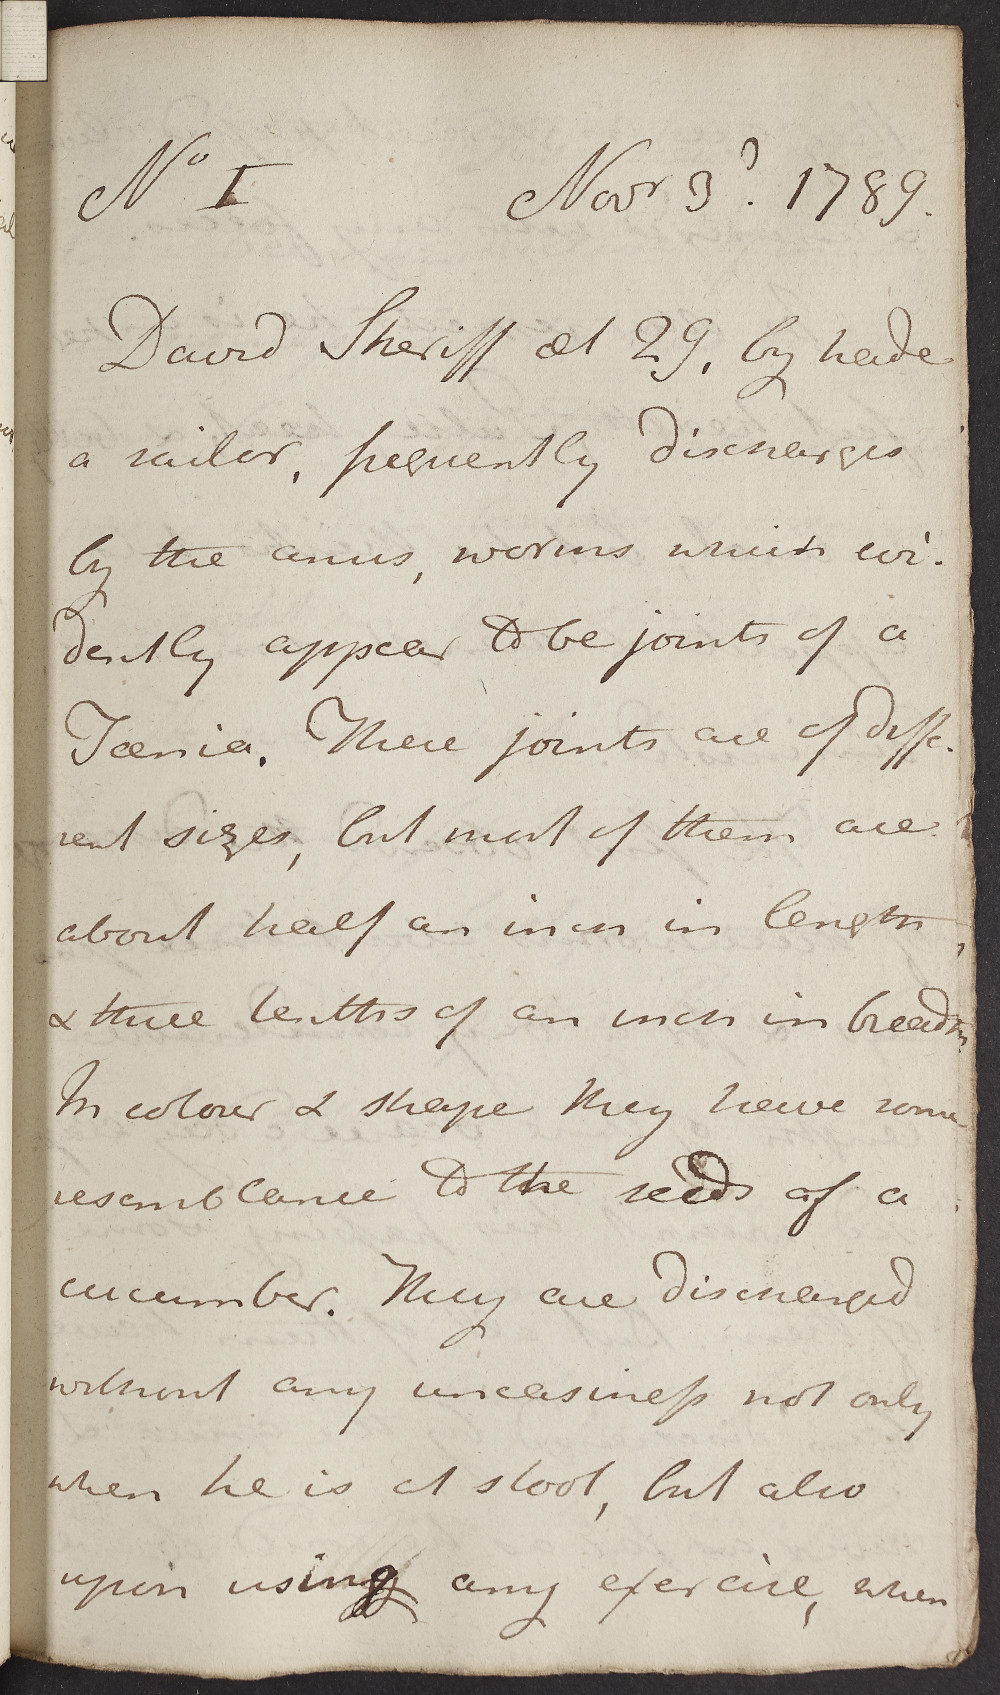 No I Novr 3d. 1789.
David Sheriff æt 29, by trade
a sailor, frequently discharges
by the anus, worms which evi-
dently appear to be joints of a
Tænia. These joints are of diffe-
rent sizes, but most of them are
about half an inch in length,
& three tenths of an inch in breadth.
In colour & shape they have some
resemblance to the seeds of a
cucumber. They are discharged
without any uneasiness not only
when he is at stool, but also
upon using any exercise, when